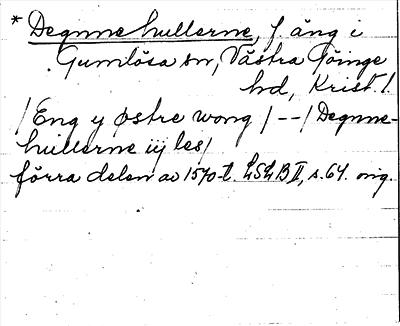 * Degnnehullerne, f. äng i
Gumlösa sn, Västra Göinge
hd, Krist. l.
/ Eng y østre wong / -- / Degnne-
hullerne iij les /
förra delen av 1570-t. LSLB II, s. 64. orig.